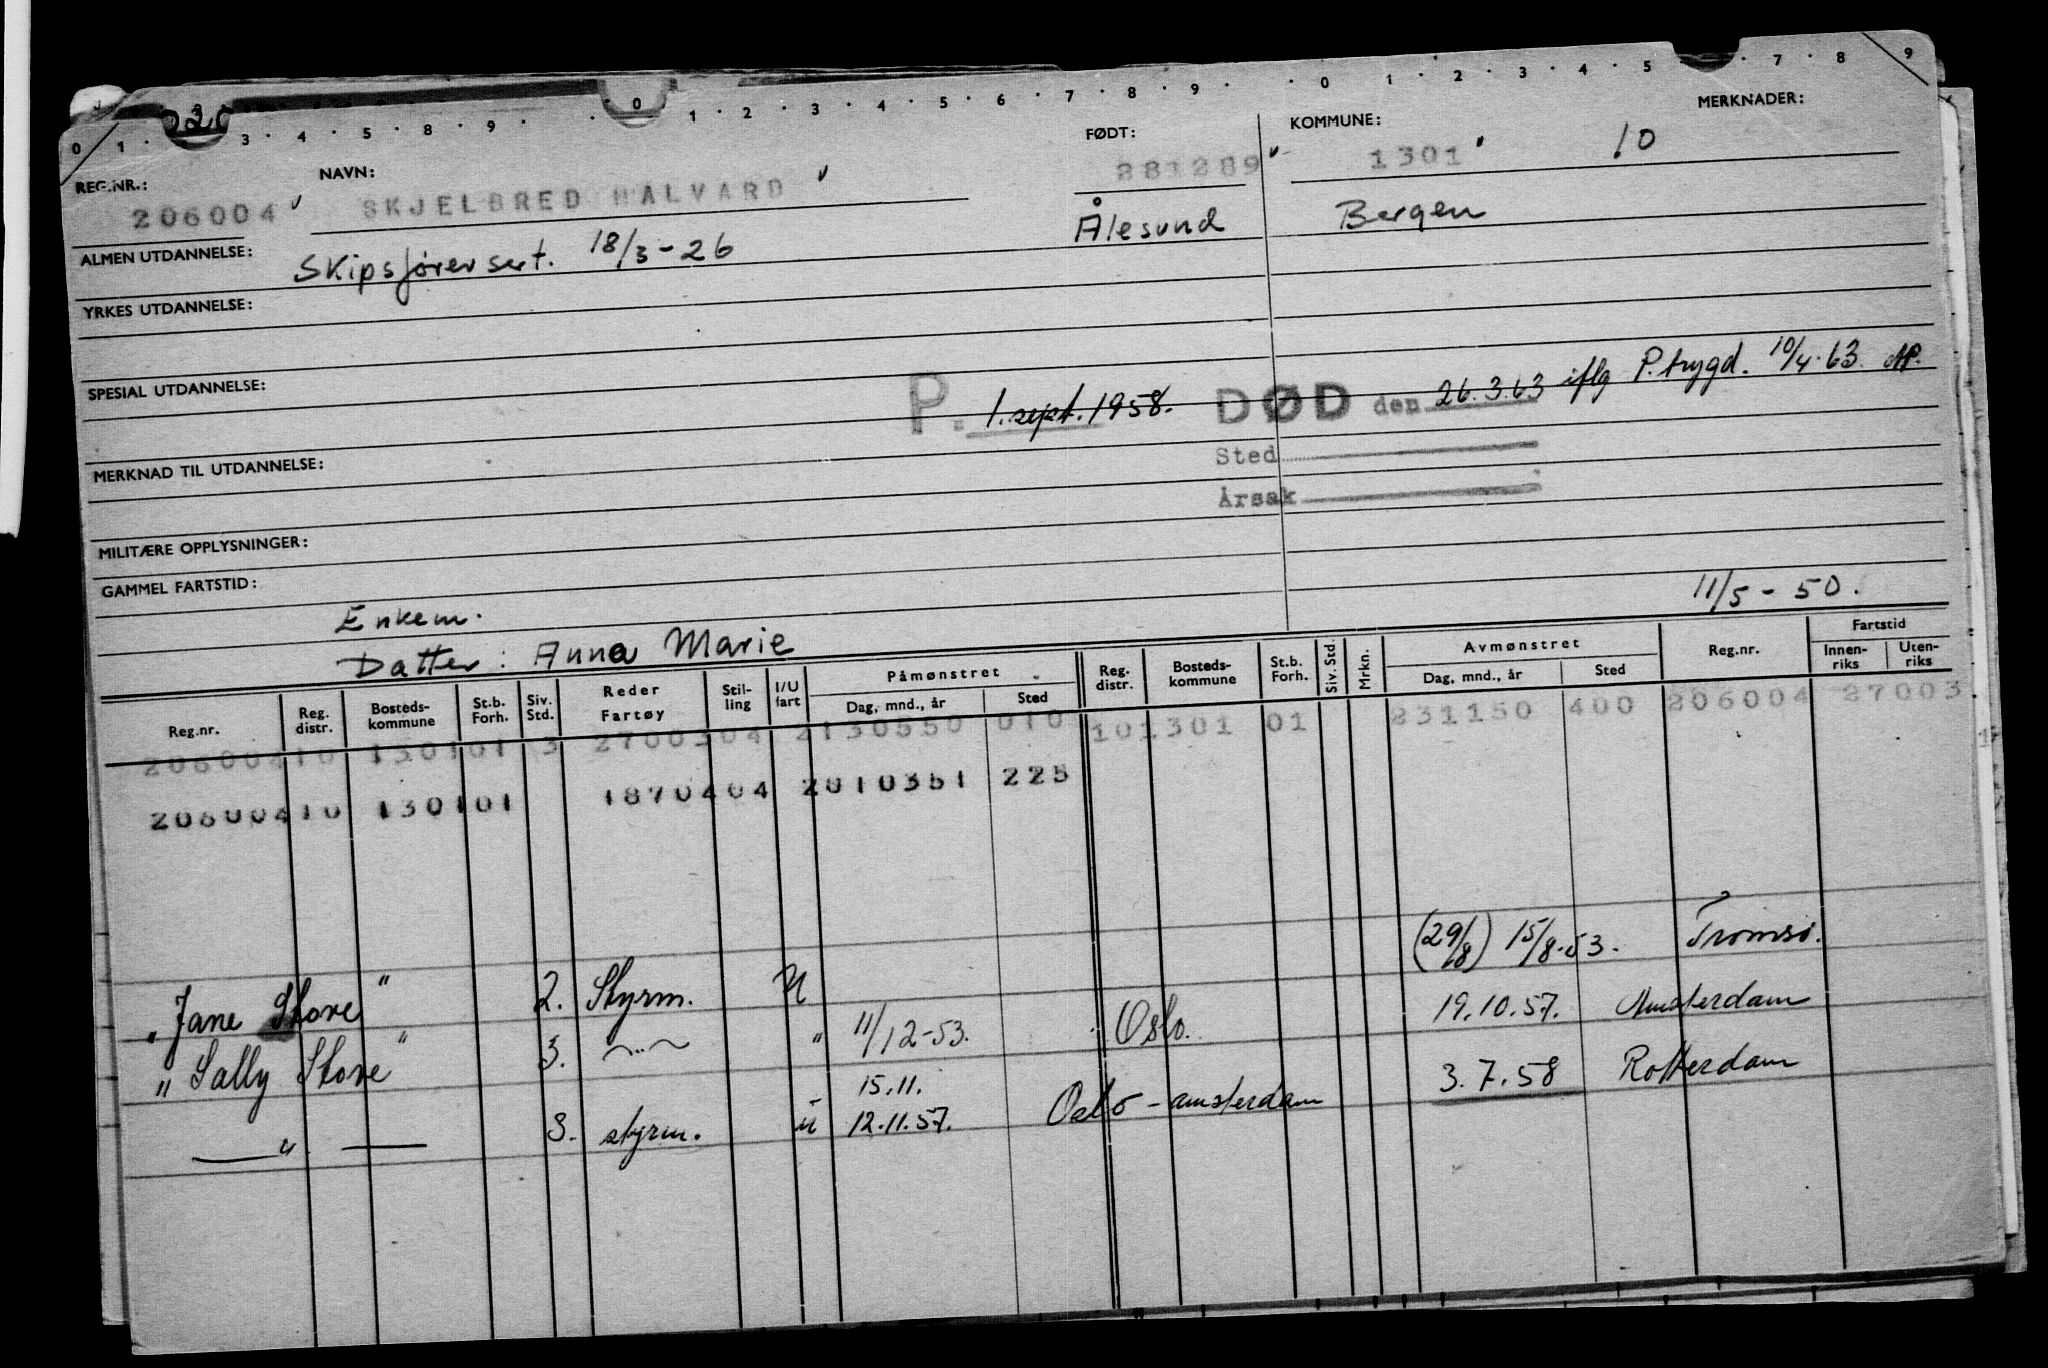 0 1 · 3 · 4 · 5 · 8 · 9 · · 0 1 · 2 · 3 · 4 · 5 · 6 · 7 · 8 · 9 · · 0 1 · 2 · 3 · 4 · 5 · 7 · 8 9
REG.NR.: NAVN: FØDT: KOMMUNE: MERKNADER:
206004 SKJELBRED HALVARD 281289 1301 10
ALMEN UTDANNELSE: Skipsførersert. 18/3-26 Ålesund Bergen
YRKES UTDANNELSE:
SPESIAL UTDANNELSE:
P. 1. sept. 1958. DØD den 26.3.63 iflg P.trygd. 10/4.63
Sted
MERKNAD TIL UTDANNELSE:
Årsak
MILITÆRE OPPLYSNINGER:
GAMMEL FARTSTID:
Enkem. 11/5-50.
Datter: Anna Marie
Reg.nr. Reg. distr. Bosteds-kommune St.b. Forh. Siv. Std. Reder Fartøy Stil-ling I/U fart Påmønstret Dag, mnd., år Sted Reg. distr. Bosteds-kommune St.b. Forh. Siv. Std. Mrkn. Avmønstret Dag, mnd., år Sted Reg.nr. Fartstid Innen-riks Uten-riks
20600410 130101 3 2700304 2130550 010 101301 01 231150 400 206004 27003
20600410 130101 1870404 2010351 225
„Jane Stove" 2. Styrm. U (29/8) 15/8.53. Tromsø.
„Sally Stove" 3. —"— " 11/12-53. Oslo. 19.10.57. Amsterdam
—"— 3. styrm. u 15.11. 12.11.57. Oslo-amsterdam 3.7.58 Rotterdam